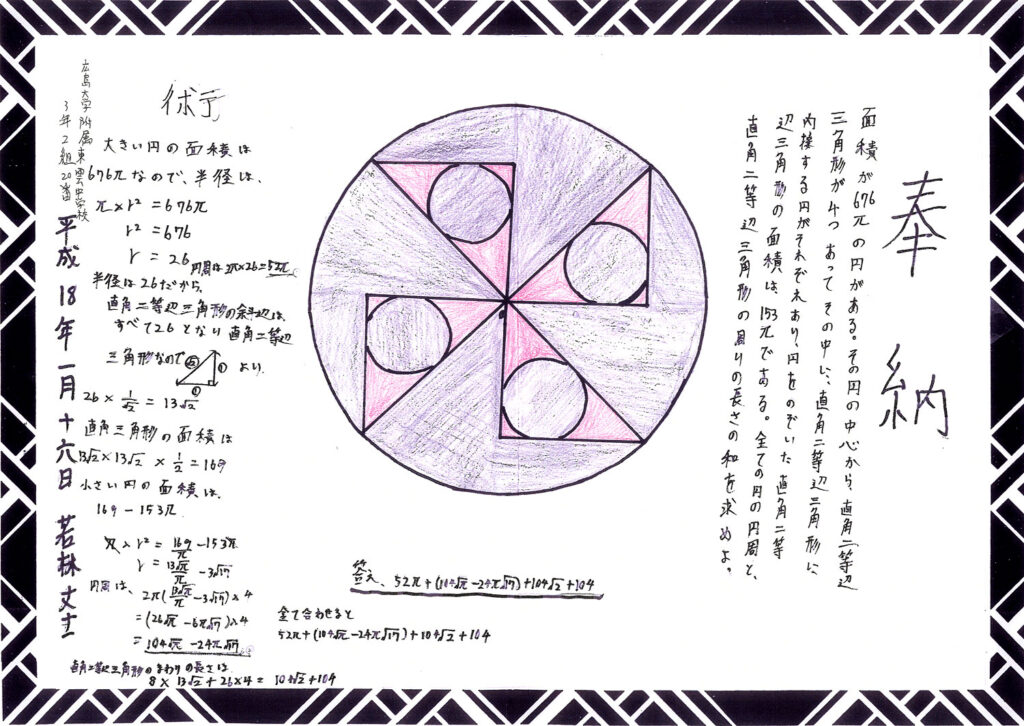 奉納
面積が676πの円がある。その円の中心から、直角二等辺
三角形が4つあってその中に、直角二等辺三角形に
内接する円がそれぞれあり、円をのぞいた直角二等
辺三角形の面積は、153πである。全ての円の円周と、
直角二等辺三角形の周りの長さの和を求めよ。
術
大きい円の面積は
676πなので、半径は、
π×r²=676π
r²=676
r=26
円周は2π×26=52π
半径は26だから、
直角二等辺三角形の斜辺は、
すべて26となり直角二等辺
三角形なので √2 1 1 より
26×1/√2=13√2
直角三角形の面積は
13√2×13√2×1/2=169
小さい円の面積は、
169-153π
π×r²=169-153π
r=13√π/π-3√17
円周は、2π(13√π/π-3√17)×4
=(26√π-6π√17)×4
=104√π-24π√17
直角二等辺三角形のまわりの長さは
8×13√2+26×4=104√2+104
全て合わせると
52π+(104√π-24π√17)+104√2+104
答え、52π+(104√π-24π√17)+104√2+104
広島大学附属東雲中学校
3年2組20番
平成18年一月十六日 若林丈士